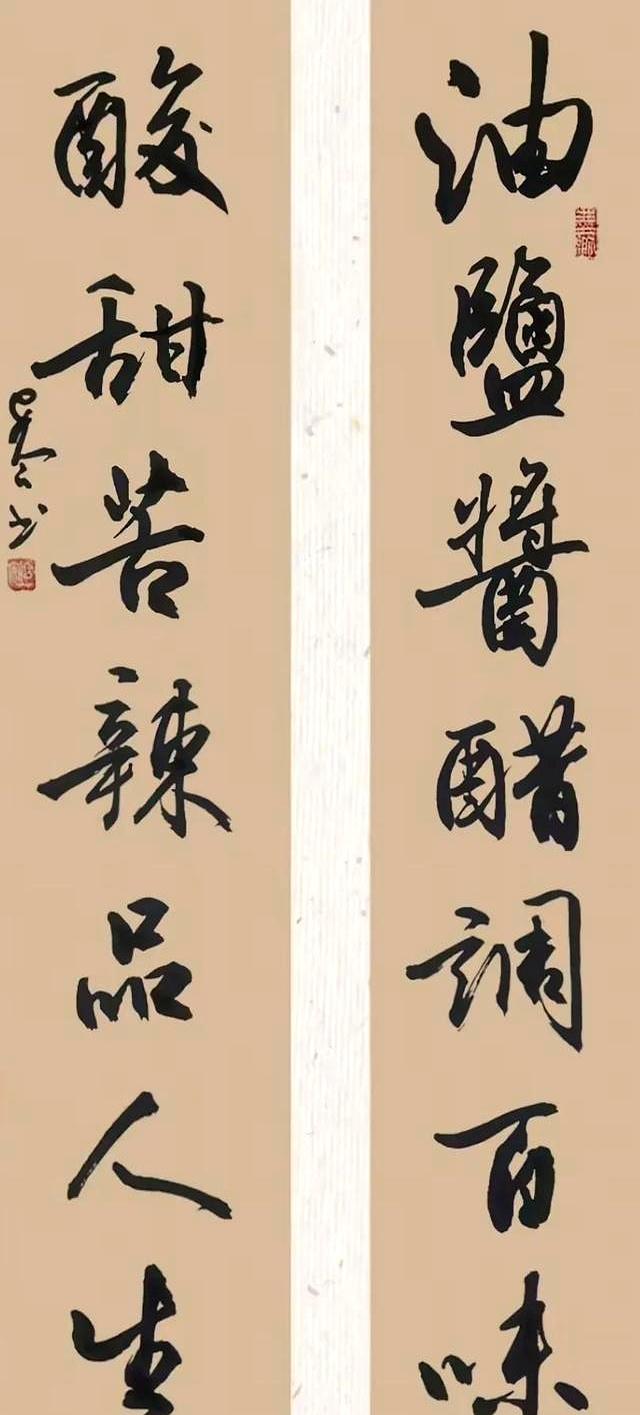 油鹽醬醋調百味
酸甜苦辣品人生